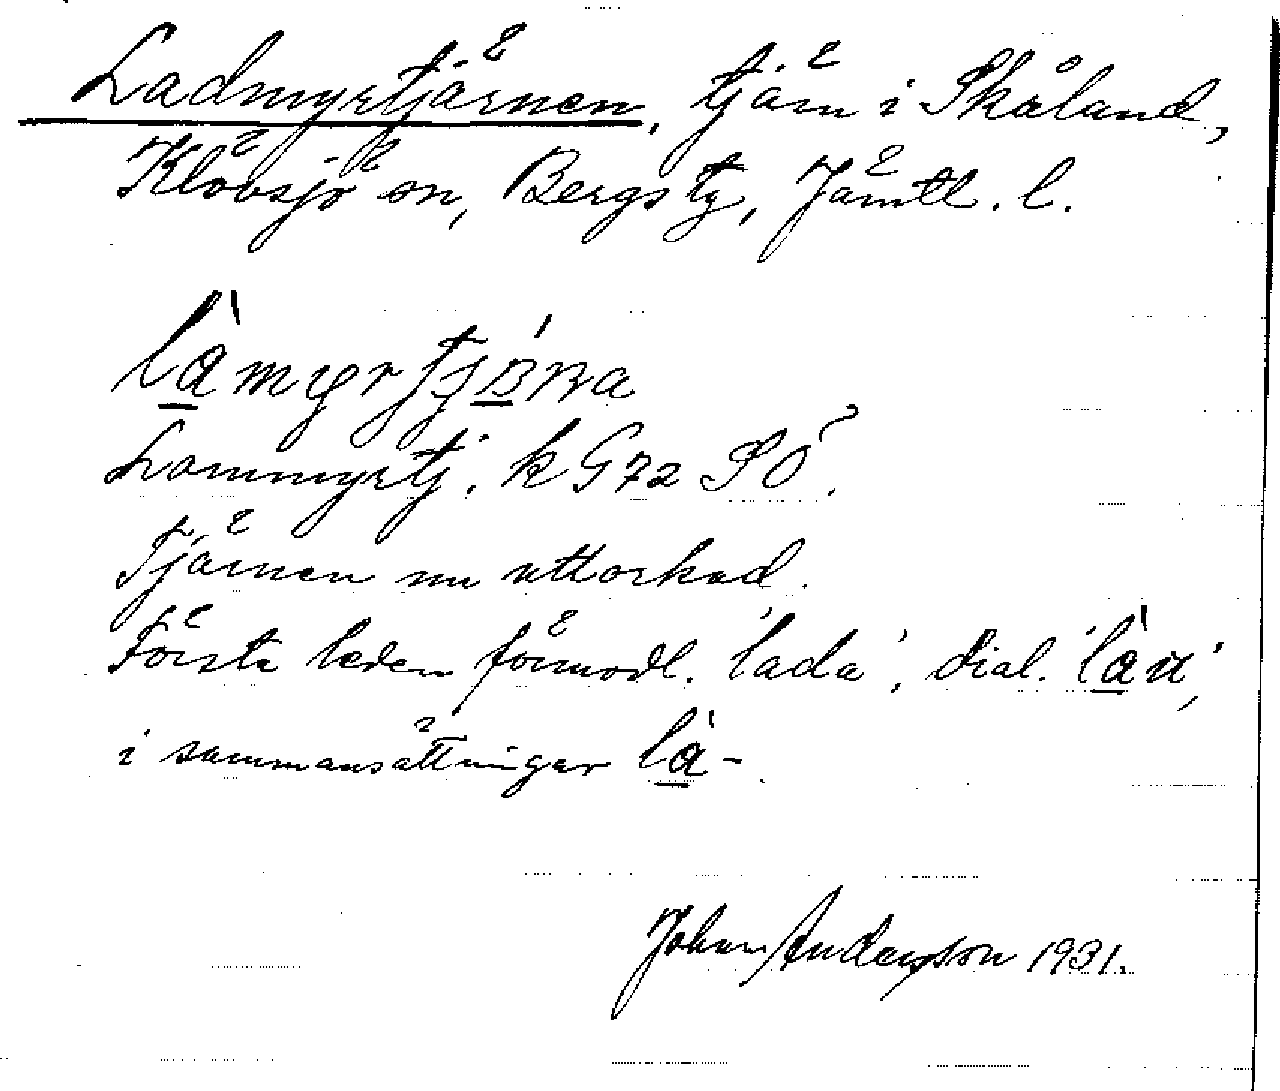 Ladmyrtjärnen, tjärn i Skålan,
Klövsjö sn, Bergs tg, Jämtl. l.
Lommyrtj. k G72 SÖ.
Tjärnen nu uttorkad.
Första leden förmodl. 'lada', dial. 'làu',
i sammansättningar là-
Johan Anderson 1931.